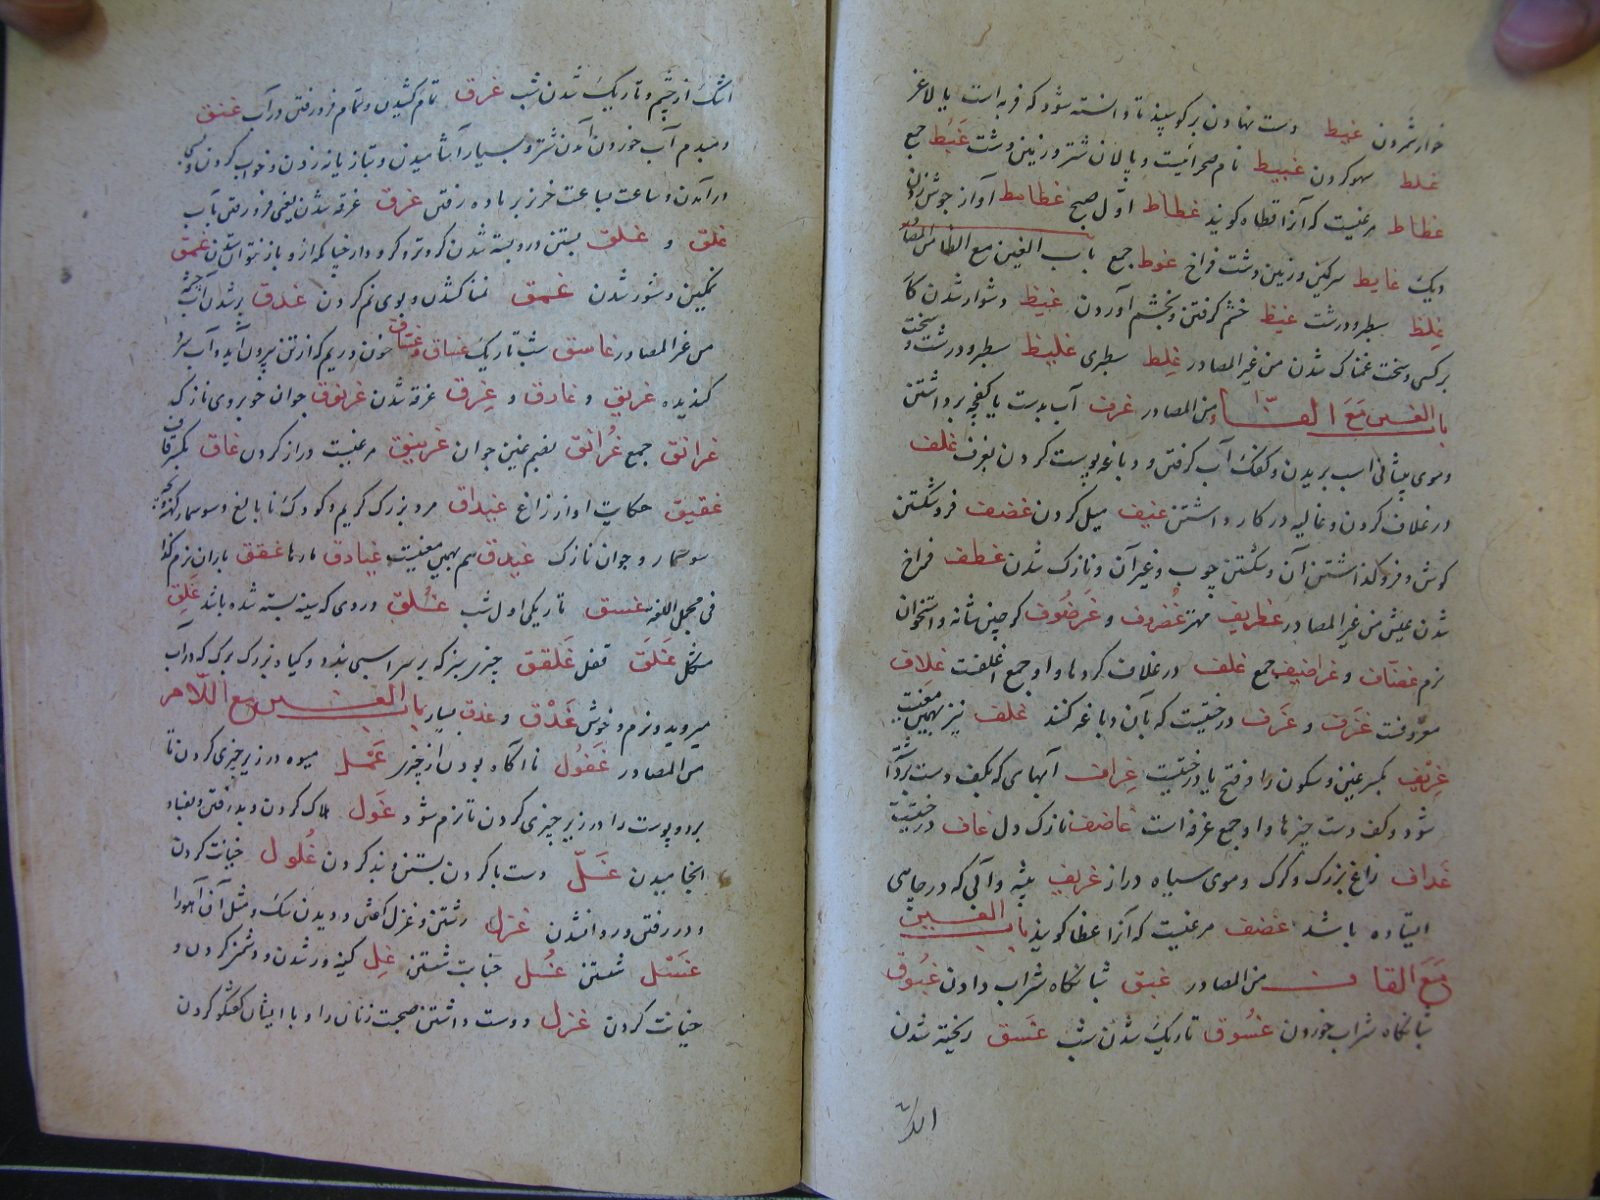 خوار شمردن غبط دست نهادن بر کوسپند تا دانسته شود که فربه است یا لاغر
غلط سهو کردن غبیط نام صحرائیست و پالان شتر و زمین و شت غبط جمع
غطاط مرغیست که آنرا قطاه کویند غطاط اول صبح غطامط آواز جوش زدن
دیک غایط سرکین و زمین و شت فراخ غوط جمع باب الغین مع الظا من المصا
غلظ سطبر و درشت غیظ خشم کرفتن و بخشم آوردن غیظ دشوار شدن کا
بر کسی و سخت غمناک شدن من غیر المصادر غلظ سطبری غلیظ سطبر و درشت و سخت
باب الغین مع الفا من المصادر غرف آب بدست یا بکفچه برداشتن
و موی پیشانی اسب بریدن و کفک آب کرفتن و دباغه پوست کردن بغرف غلف
در غلاف کردن و غالیه در کار داشتن غیف میل کردن غضف فرو شکستن
کوش و فرو کذاشتن آن و شکستن چوب و غیر آن و نازک شدن غطف فراخ
شدن عیش من غیر المصادر غطریف مهتر غضروف و غرضوف کوچین شانه و استخوان
نرم غضاف و غراضیف جمع غلف در غلاف کردها و او جمع اغلفت غلاف
معروفت غرف و غرف درختیست که بآن دباغه کنند غلف نیز بهمین معنیست
غریف بکسر غین و سکون را و فتح یا درختیست غراف آبهای که بکف دست بردا
شود و کف دست چیزها و او جمع غرفه است غاضف نازک دل غاف درختیست
غداف زاغ بزرک و کرک و موی سیاه دراز غریف بیشه و آبی که در جایی
ایستاده باشد غضف مرغیست که آنرا غطا کویند باب الغین
مع القاف من المصادر غبق شبانکاه شراب دادن غبوق
شبانکاه شراب خوردن غسوق تاریک شدن شب غسق ریخته شدن
اشک
اشک از چشم و تاریک شدن شب غرق تام کشیدن و تمام فرو رفتن در آب غنق
دمبدم آب خوردن آمدن شتر و بسیار آشامیدن و بتازیانه زدن و خواب کردن و
در آمدن و ساعت بساعت خر نر بر ماده رفتن غرق غرقه شدن یعنی فرو رفتن بآب
غلق و غلق بستن در و بسته شدن کرو نزد کرو دار چنانکه از و باز نتوان ستدن غمق
نمکین و شور شدن غمق نمناک شدن و بوی نم کردن غدق پر شدن آب چشمه
من غیر المصادر غاسق شب تاریک غساق و غساق خون و ریم که از تن بیرون آید و آب سرد
کندیده غریق و غارق و غرق غرقه شدن غرنوق جوان خوبروی نازک
غرانق جمع غرانق بضم غین جوان غرنیق مرغیست دراز کردن غاق بکسر قاف
غقیق حکایت اواز زاغ غیداق مرد بزرک کریم و کودک نابالغ و سوسمار که بچه
سوسمار و جوان نازک غیدق هم بهمین معنیست غیادق مارها غقق باران نرم کذا
فی مجمل اللغه غسق تاریکی اول شب غلق دروی که سینه بسته شده باشد غلق
مشکل غلق قفل غلفق چیزی سبز که بر سر اسبی بندد و کیاه بزرک برک که در آب
میروید و نرم و خوش غدق و غدق بسیار باب الغین مع اللام
من المصادر غفول نا آکاه بودن از چیزی غمل میوه در زیر چیزی کردن تا
برد و پوست را در زیر چیزی کردن تا نرم شود غول هلاک کردن و بد رفتن و بفساد
انجامیدن غل دست با کردن بستن و بند کردن غلول خیانت کردن
و در رفتن و روان شدن غزل رشتن و غزل کفتن و دویدن سک و مثل آن آهو را
غسل شستن غسل جنابت شستن غل کینه ور شدن و دشمنی کردن و
خیانت کردن غزل دوست داشتن صحبت زنان را و با ایشان کفتکو کردن